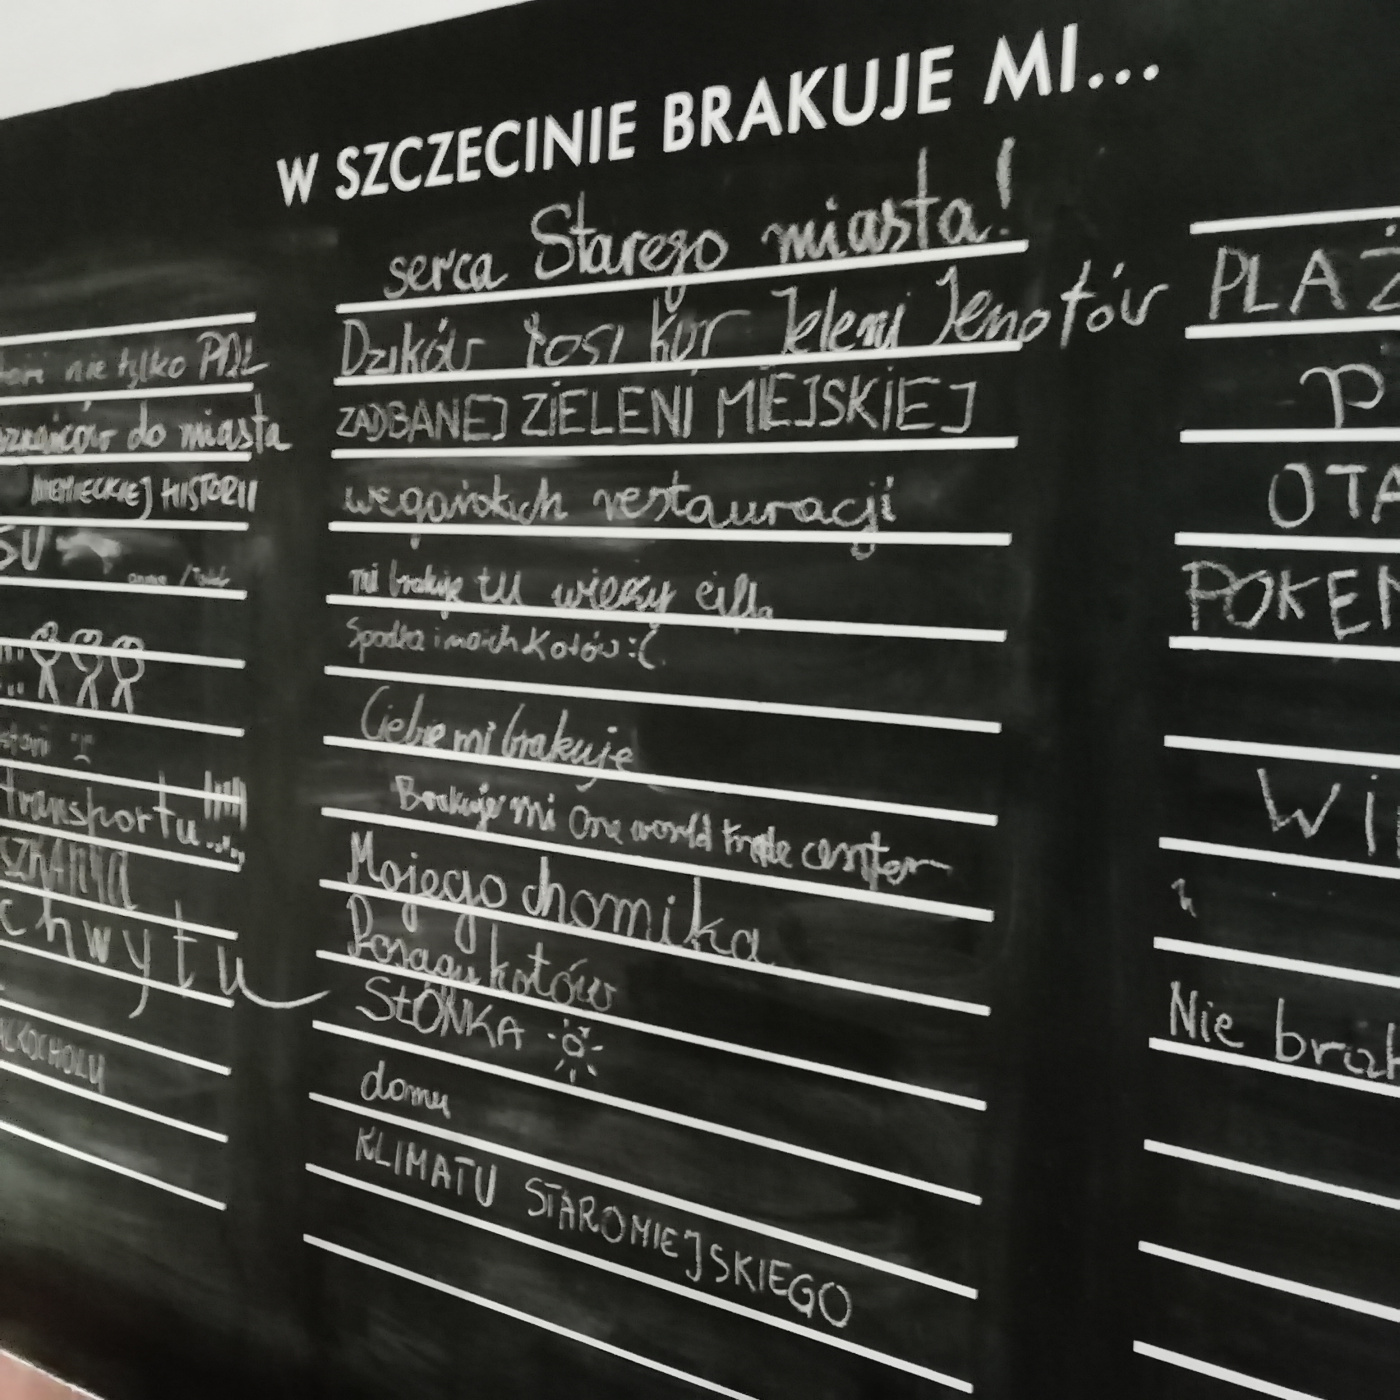 W SZCZECINIE BRAKUJE MI...
nie tylko
do miasta
NIEMIECKIEJ HISTORII
transportu!!!!
chwytu
serca Starego miasta!
Dzików Łosi Kur Jeleni Jenotów
ZADBANEJ ZIELENI MIEJSKIEJ
wegańskich restauracji
mi brakuje tu wieży
Spodka i moich Kotów :(
Ciebie mi brakuje
Brakuje mi One world trade center
Mojego chomika
Posągu kotów
SŁOŃKA
domu
KLIMATU STAROMIEJSKIEGO
PLAŻ
P
OTA
POKEM
Wi
Nie brak